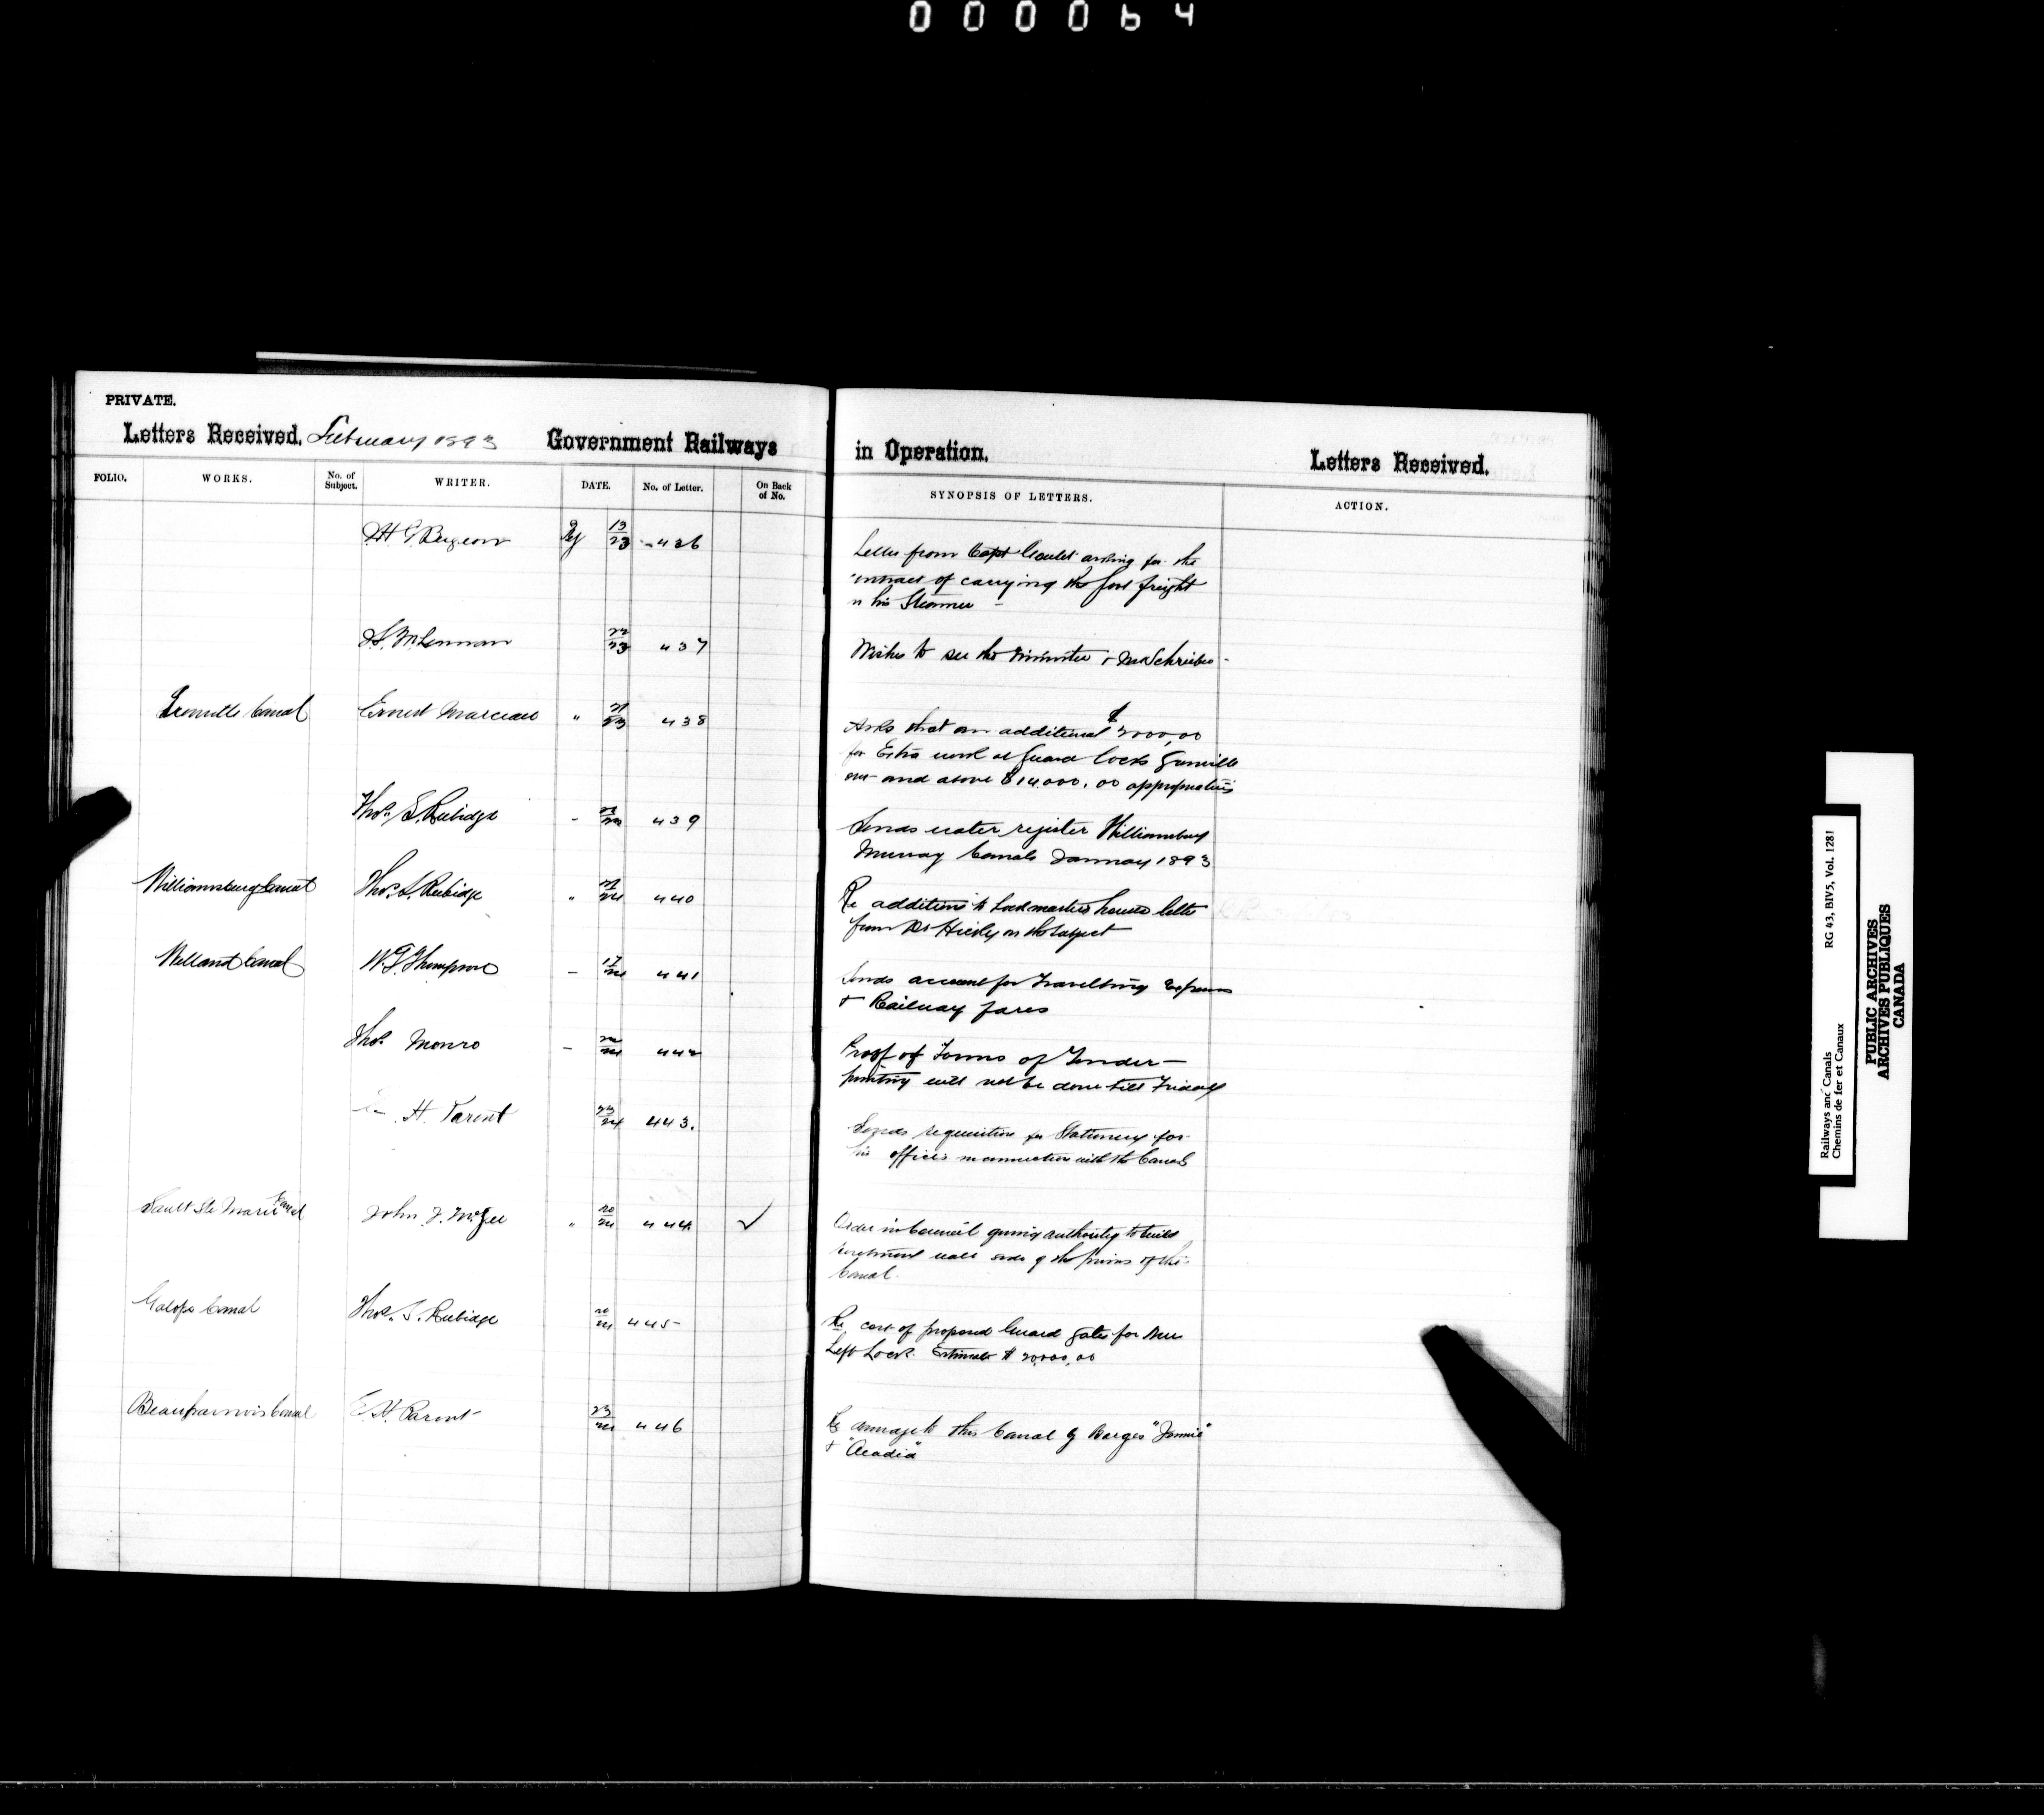 000064
PRIVATE.
Letters Received. February 1893 Government Railways in Operation. Letters Received.
FOLIO. WORKS. No. of Subject. WRITER. DATE. No. of Letter. On Back of No. SYNOPSIS OF LETTERS. ACTION.
13/23 436 Letter from Capt asking for the
of carrying the freight
his Steamer -
437 Wishes to see the Minister & Mr Schreiber -
Grenville Canal Ernest Marceau " 438 Asks that an additional $2000,00
for Extra work at Guard Locks Grenville
over and above $14,000.00 appropriation
Thos. S. Rubidge - 439 Sends water register Williamsburg
Murray Canals January 1893
Williamsburg Canal Thos. S. Rubidge " 440 Re addition to Lockmasters house letter
from Dr on the subject
Welland Canal W. G. Thompson - 17/24 441 Sends account for Travelling Expenses
& Railway fares
Thos. Monro - 442 Proof of Forms of Tender -
printing will not be done till Friday
E. H. Parent 23/24 443. Sends requisition for Stationery for
his office in connection with the Canals
Sault Ste Marie Canal John J. McGee " 20/24 444 ✓ Order in Council giving authority to build
wall of the of the
Canal.
Galops Canal Thos. S. Rubidge 20/24 445 Re cost of proposed Guard gates for New
Lift Lock. Estimate $20,000,00
Beauharnois Canal E. H. Parent 23/24 446 Re damage to this Canal by Barges "Jennie"
& "Acadia"
Railways and Canals RG 43, BIV5, Vol. 1281
Chemins de fer et Canaux
PUBLIC ARCHIVES
ARCHIVES PUBLIQUES
CANADA